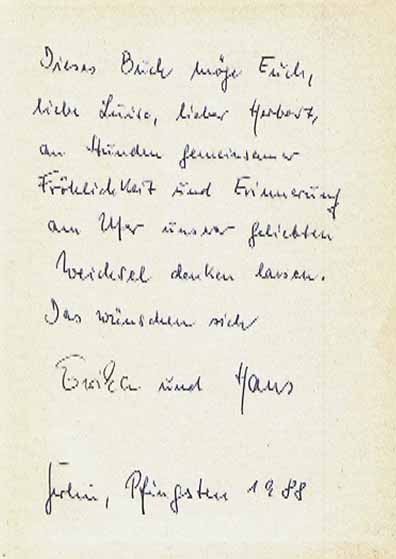 Dieses Buch möge Euch,
liebe Luise, lieber Herbert,
an Stunden gemeinsamer
Fröhlichkeit und Erinnerung
am Ufer unserer geliebten
Weichsel denken lassen.
Das wünschen sich
Erika und Hans
Berlin, Pfingsten 1988